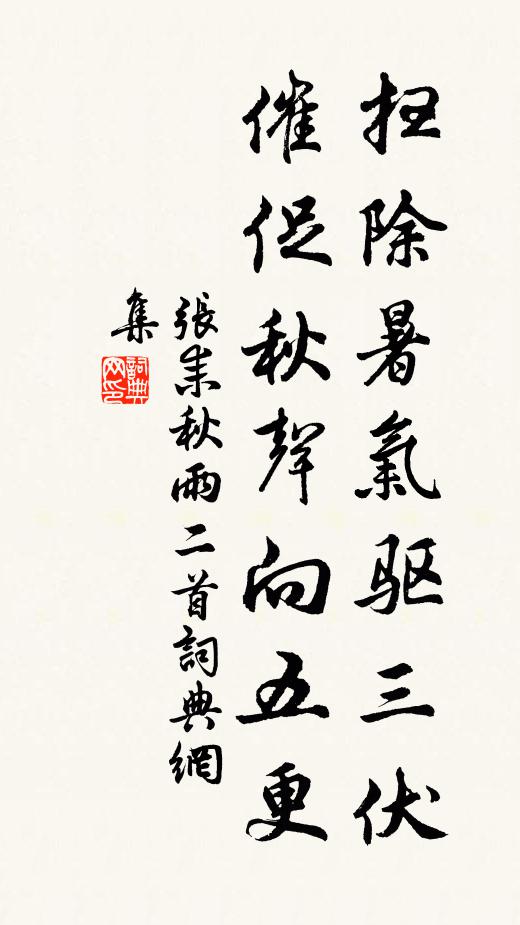 扫除暑氣驱三伏
催促秋聲向五更
張耒秋雨二首詞典網
集
詞典网印